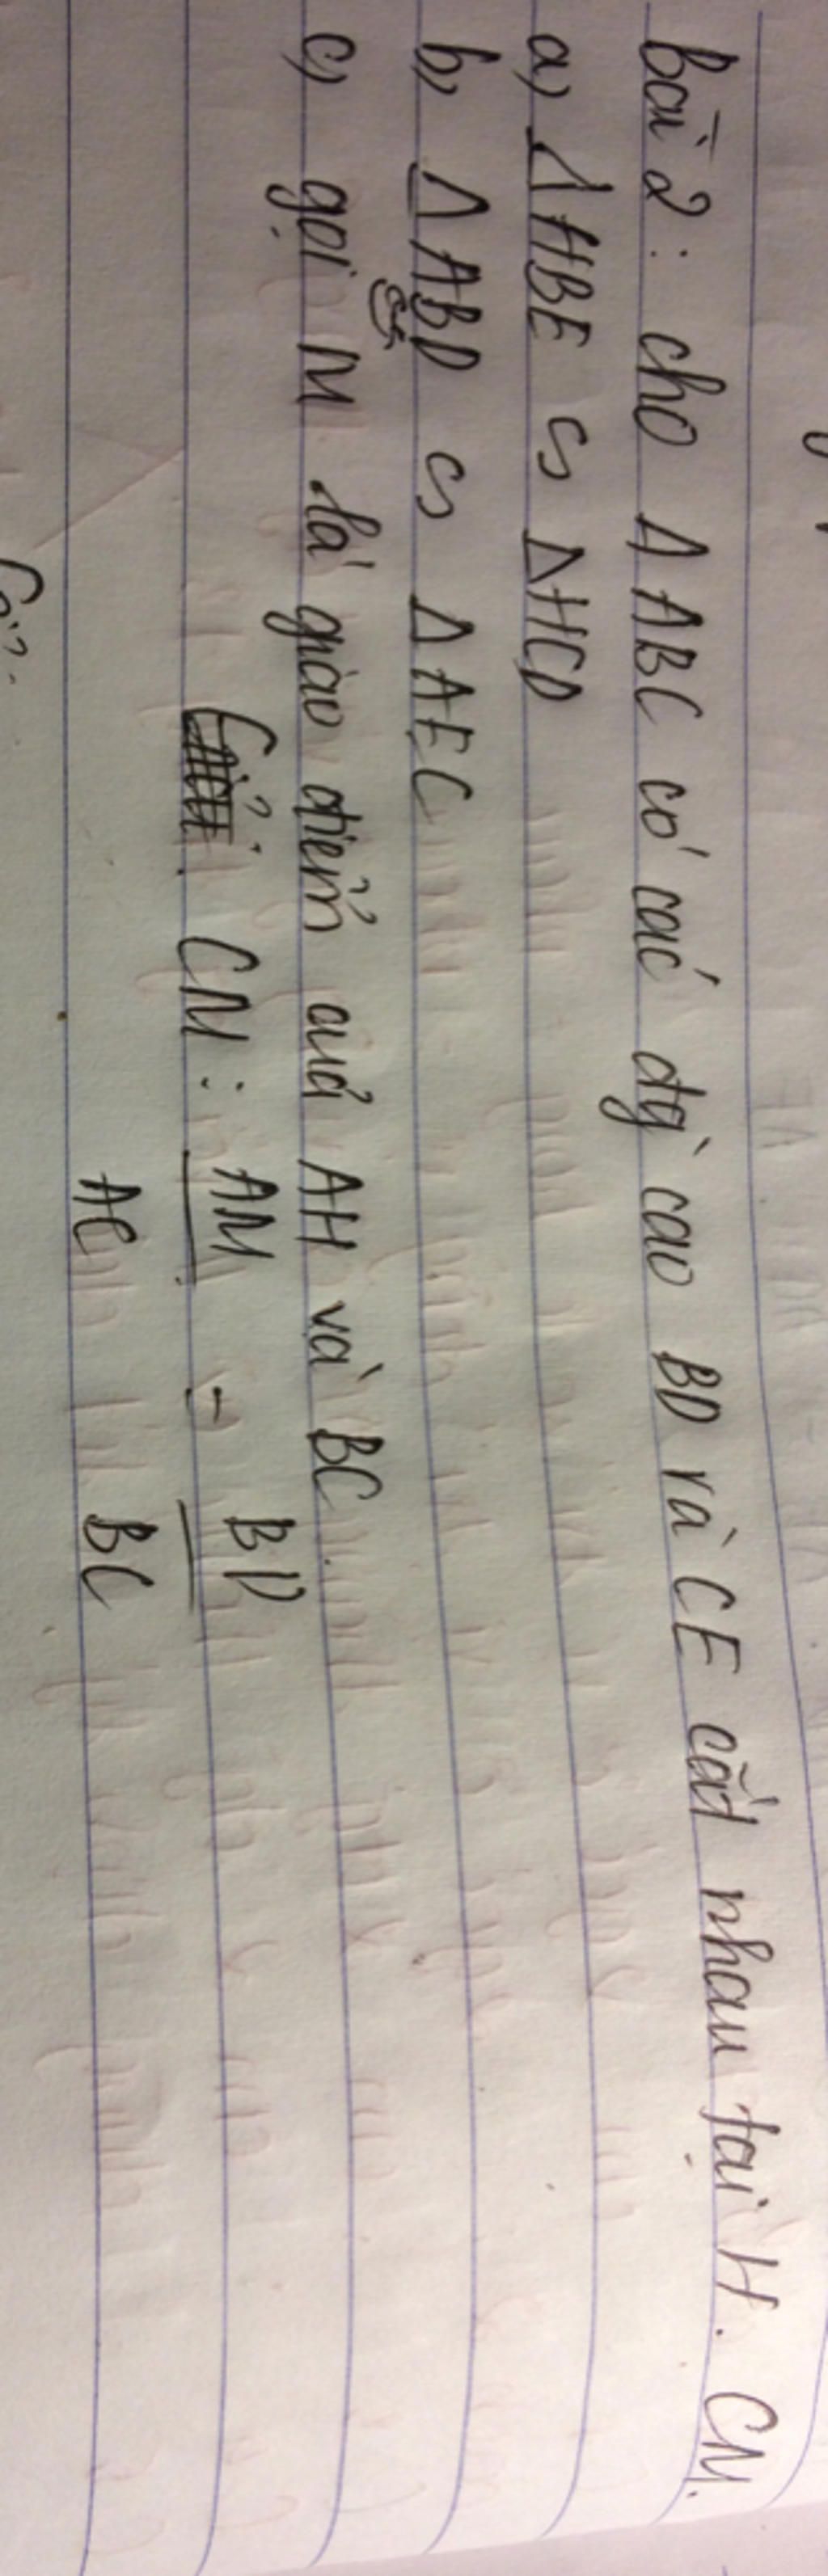 bài 2: cho Δ ABC có các đg` cao BD và CE cắt nhau tại H. CM.
a, ΔHBE ∽ ΔHCD
b, ΔABD ∽ ΔAEC
c, gọi M là giao điểm của AH và BC.
CM: AM = BD
AC BC